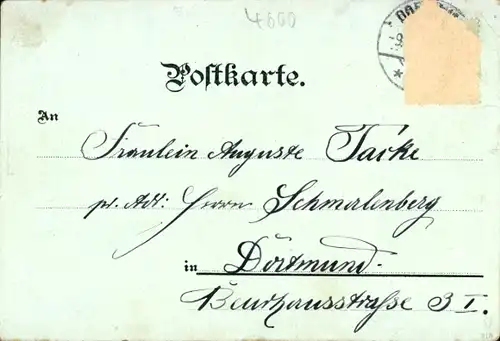 4600
Postkarte.
An
Fräulein Auguste Tacke
pr. Adr: Herrn Schmalenberg
in Dortmund.
Beurhausstraße 3 I.